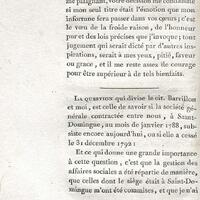 me plaignant, votre décision me condamne
si mon seul titre était l'émotion que mon
infortune fera passer dans vos cœurs; c'est
le vœu de la froide raison, de l'honneur
par et des lois précises que j'invoque; tout
jugement qui serait dicté par d'autres ins-
pirations, serait à mes yeux, pitié, faveur
ou grace, et il me reste assez de courage
pour être supérieur à de tels bienfaits.
LA QUESTION qui divise le cit. Barvillon
et moi, est celle de savoir si la société gé-
nérale contractée entre nous, à Saint-
Domingue, au mois de janvier 1788, sub-
siste encore aujourd'hui, ou si elle a cessé
le 31 décembre 1792:
Et ce qui donne une grande importance
à cette question, c'est que la gestion des
affaires sociales a été répartie de manière,
que celles dont le siège était à Saint-Do-
mingue m'ont été commises, et que je n'ai